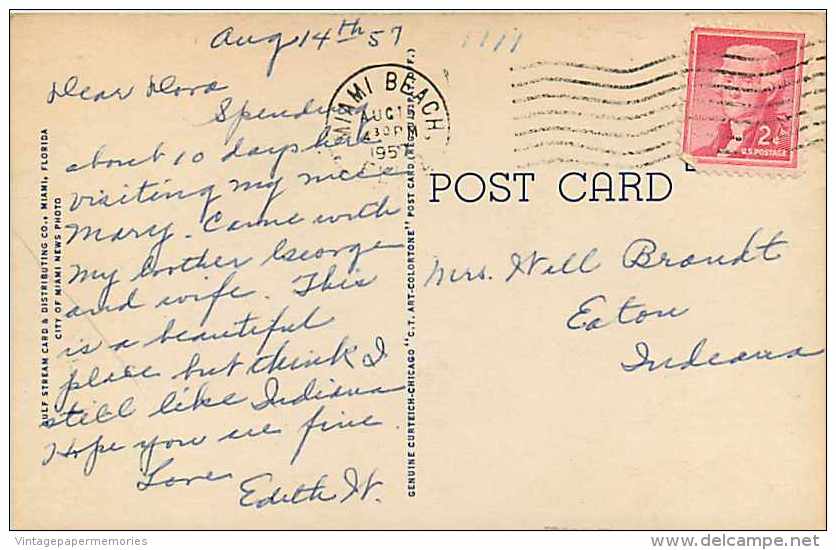 Aug 14th 57
Dear Dora
Spending
about 10 days here
visiting my niece
Mary. Came with
my brother George
and wife. This
is a beautiful
place but think I
still like Indiana
Hope you are fine.
Love
Edith W.
MIAMI BEACH
AUG 1
30 PM
195
2¢
U.S. POSTAGE
POST CARD
Mrs. Will Brandt
Eaton
Indiana
GULF STREAM CARD & DISTRIBUTING CO., MIAMI, FLORIDA
CITY OF MIAMI NEWS PHOTO
GENUINE CURTEICH-CHICAGO "C.T. ART-COLORTONE" POST CARD (REG. U.S. PAT. OFF.)
Vintagepapermemories
delcampe.net